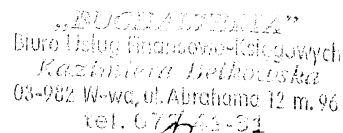 „BUCHALTERIA”
Biuro Usług Finansowo-Księgowych
Kazimiera Bełkowska
03-982 W-wa, ul. Abrahama 12 m. 96
tel. 41-31